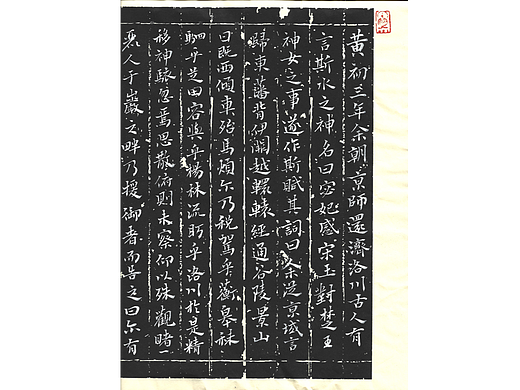 黃初三年余朝京師還濟洛川古人有
言斯水之神名曰宓妃感宋玉對楚王
神女之事遂作斯賦其詞曰余從京域言
歸東藩背伊闕越轘轅經通谷陵景山
日既西傾車殆馬煩尒乃稅駕乎蘅皋秣
駟乎芝田容與乎楊林流眄乎洛川於是精
移神駭忽焉思散俯則未察仰以殊觀睹一
麗人于巖之畔乃援御者而告之曰尒有